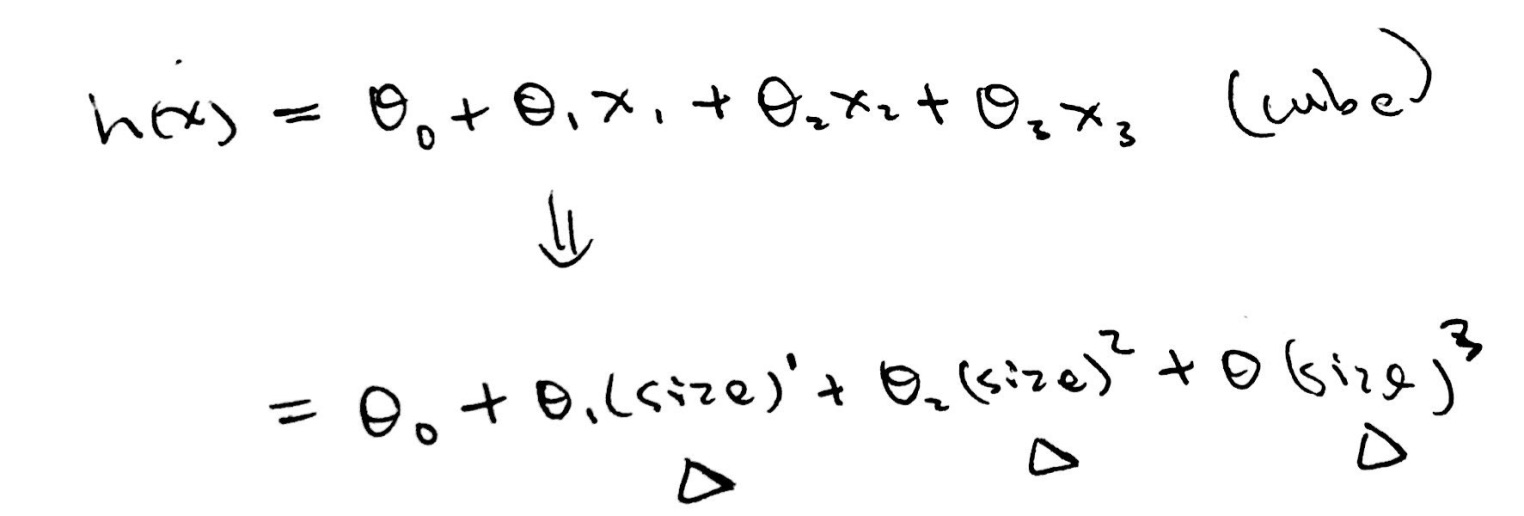 h(x) = θ₀ + θ₁x₁ + θ₂x₂ + θ₃x₃ (cube)
⇓
= θ₀ + θ₁(size)¹ + θ₂(size)² + θ(size)³
△ △ △